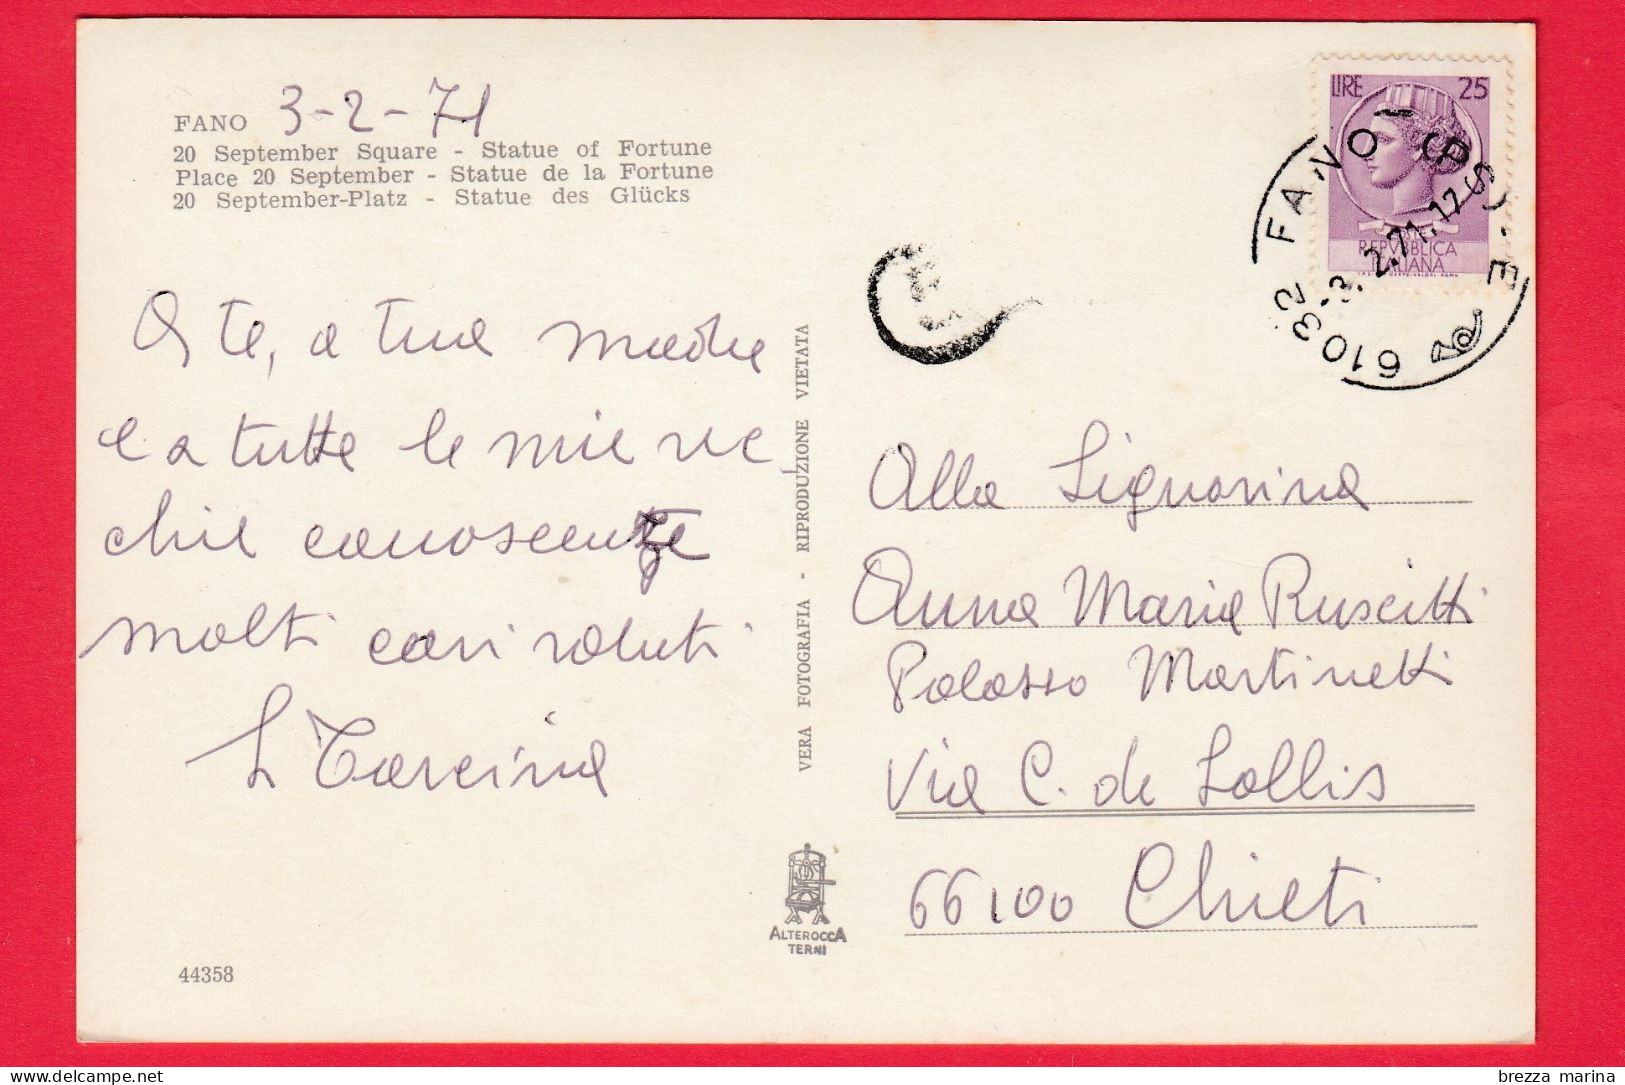 FANO 3-2-71
20 September Square - Statue of Fortune
Place 20 September - Statue de la Fortune
20 September-Platz - Statue des Glücks
A te, a tua madre
e a tutte le mie vec
chie conoscenze
molti cari saluti
Tarcina
44358
VERA FOTOGRAFIA - RIPRODUZIONE VIETATA
ALTEROCCA
TERNI
LIRE 25
POSTE
REPVBBLICA
ITALIANA
61032 FANO (PS)
-3.2.71.12
Alla Signorina
Anna Maria Ruscitti
Palazzo Martinetti
Via C. de Lollis
66100 Chieti
brezza marina